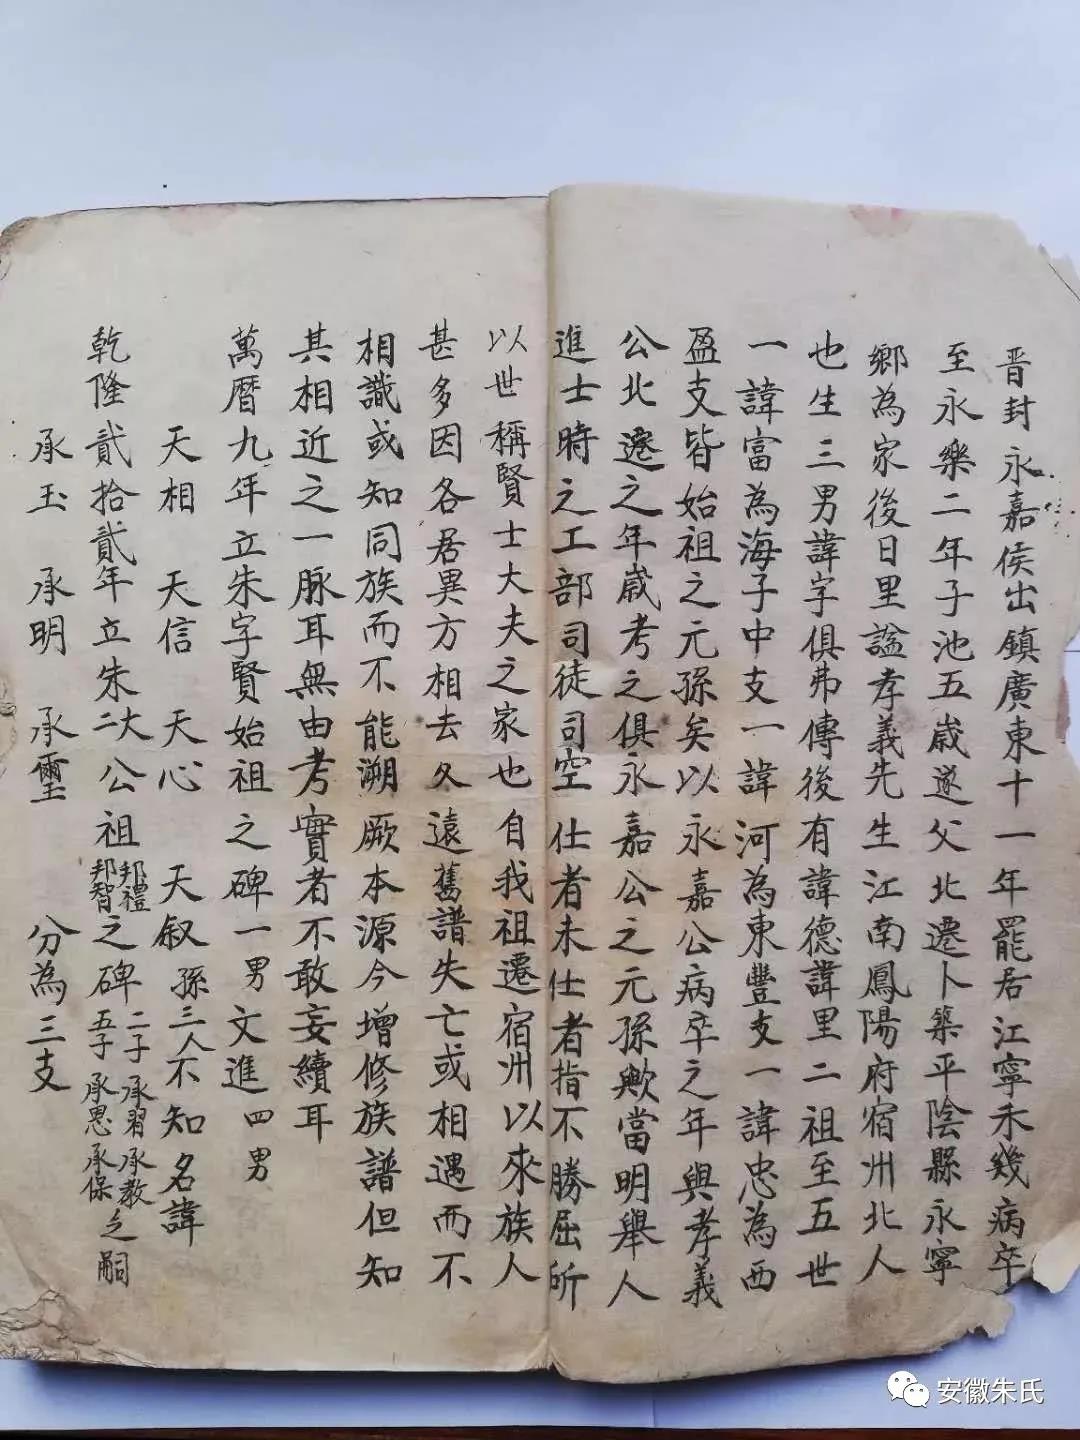 晋封永嘉侯出鎮廣東十一年罷居江寧未幾病卒
至永樂二年子池五歲遂父北遷卜築平陰縣永寧
鄉為家後日里謚孝義先生江南鳳陽府宿州北人
也生三男諱字俱弗傳後有諱德諱里二祖至五世
一諱富為海子中支一諱河為東豐支一諱忠為西
盈支皆始祖之元孫矣以永嘉公病卒之年與孝義
公北遷之年歲考之俱永嘉公之元孫歟當明舉人
進士時之工部司徒司空仕者未仕者指不勝屈所
以世稱賢士大夫之家也自我祖遷宿州以來族人
甚多因各居異方相去久遠舊譜失亡或相遇而不
相識或知同族而不能溯厥本源今增修族譜但知
其相近之一脉耳無由考實者不敢妄續耳
萬曆九年立朱字賢始祖之碑一男文進四男
天相 天信 天心 天叙孫三人不知名諱
乾隆貳拾貳年立朱大二公祖邦禮邦智之碑二子承習承教五子承恩承保之嗣
承玉 承明 承璽 分為三支
安徽朱氏